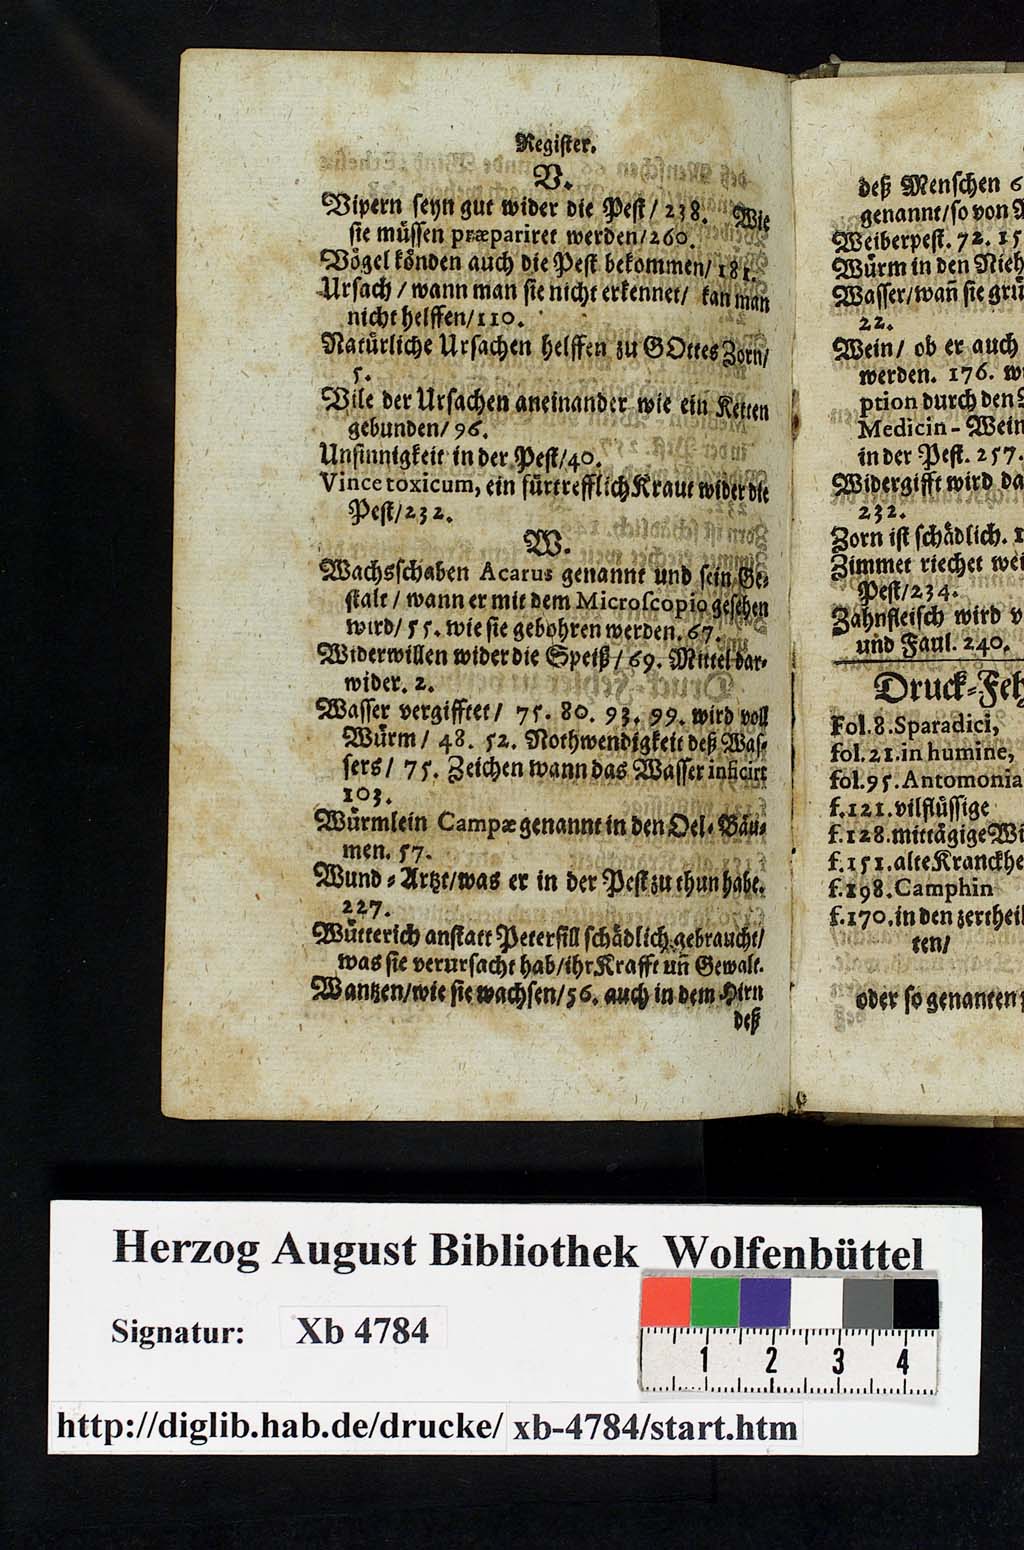 Register.
V.
Vipern seyn gut wider die Pest / 238. Wie
sie müssen præpariret werden/260.
Vögel könden auch die Pest bekommen/ 181.
Ursach / wann man sie nicht erkennet/ kan man
nicht helffen/110.
Natürliche Ursachen helffen zu GOttes Zorn/
5.
Vile der Ursachen aneinander wie ein Ketten
gebunden/ 96.
Unsinnigkeit in der Pest/40.
Vincetoxicum, ein fürtrefflich Kraut wider die
Pest/232.
W.
Wachsschaben Acarus genannt und sein Ge-
stalt / wann er mit dem Microscopio gesehen
wird/ 55. wie sie gebohren werden. 67.
Widerwillen wider die Speiß / 69. Mittel dar-
wider. 2.
Wasser vergifftet/ 75. 80. 93. 99. wird voll
Würm / 48. 52. Nothwendigkeit deß Was-
sers/ 75. Zeichen wann das Wasser inficirt
103.
Würmlein Campæ genannt in den Oel-Bäu-
men. 57.
Wund-Artzt/was er in der Pest zu thun habe.
227.
Wütterich anstatt Petersill schädlich gebraucht/
was sie verursacht hab/ihr Krafft uñ Gewalt.
Wantzen/wie sie wachsen/56. auch in dem Hirn
deß
deß Menschen 6
genannt/so von
Weiberpest. 72. 15
Würm in den Nieh
Wasser/wañ sie grü
22.
Wein/ ob er auch
werden. 176. w
ption durch den
Medicin-Wein
in der Pest. 257.
Widergifft wird da
232.
Zorn ist schädlich. 1
Zimmet riechet wei
Pest/234.
Zahnfleisch wird v
und Faul. 240.
Druck-Feh
Fol.8.Sparadici,
fol.21.in humine,
fol.95.Antomonia
f.121.vilflüssige
f.128.mittägige Wi
f.151.alte Kranckhe
f.198.Camphin
f.170.in den zertheil
ten/
oder so genanten
Herzog August Bibliothek Wolfenbüttel
Signatur: Xb 4784
1 2 3 4
http://diglib.hab.de/drucke/ xb-4784/start.htm